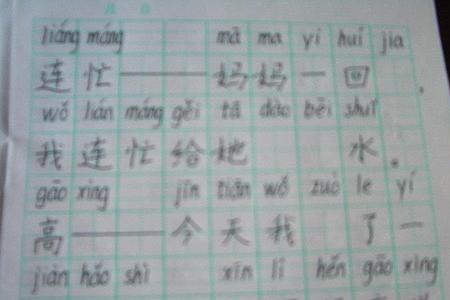 月 日
liáng máng mā ma yí huí jia
连忙——妈妈一回，
wǒ lián máng gěi tā dào bēi shuǐ
我连忙给她 水。
gāo xìng jīn tiān wǒ zuò le yí
高——今天我 了一
jiàn hǎo shì xīn lǐ hěn gāo xìng